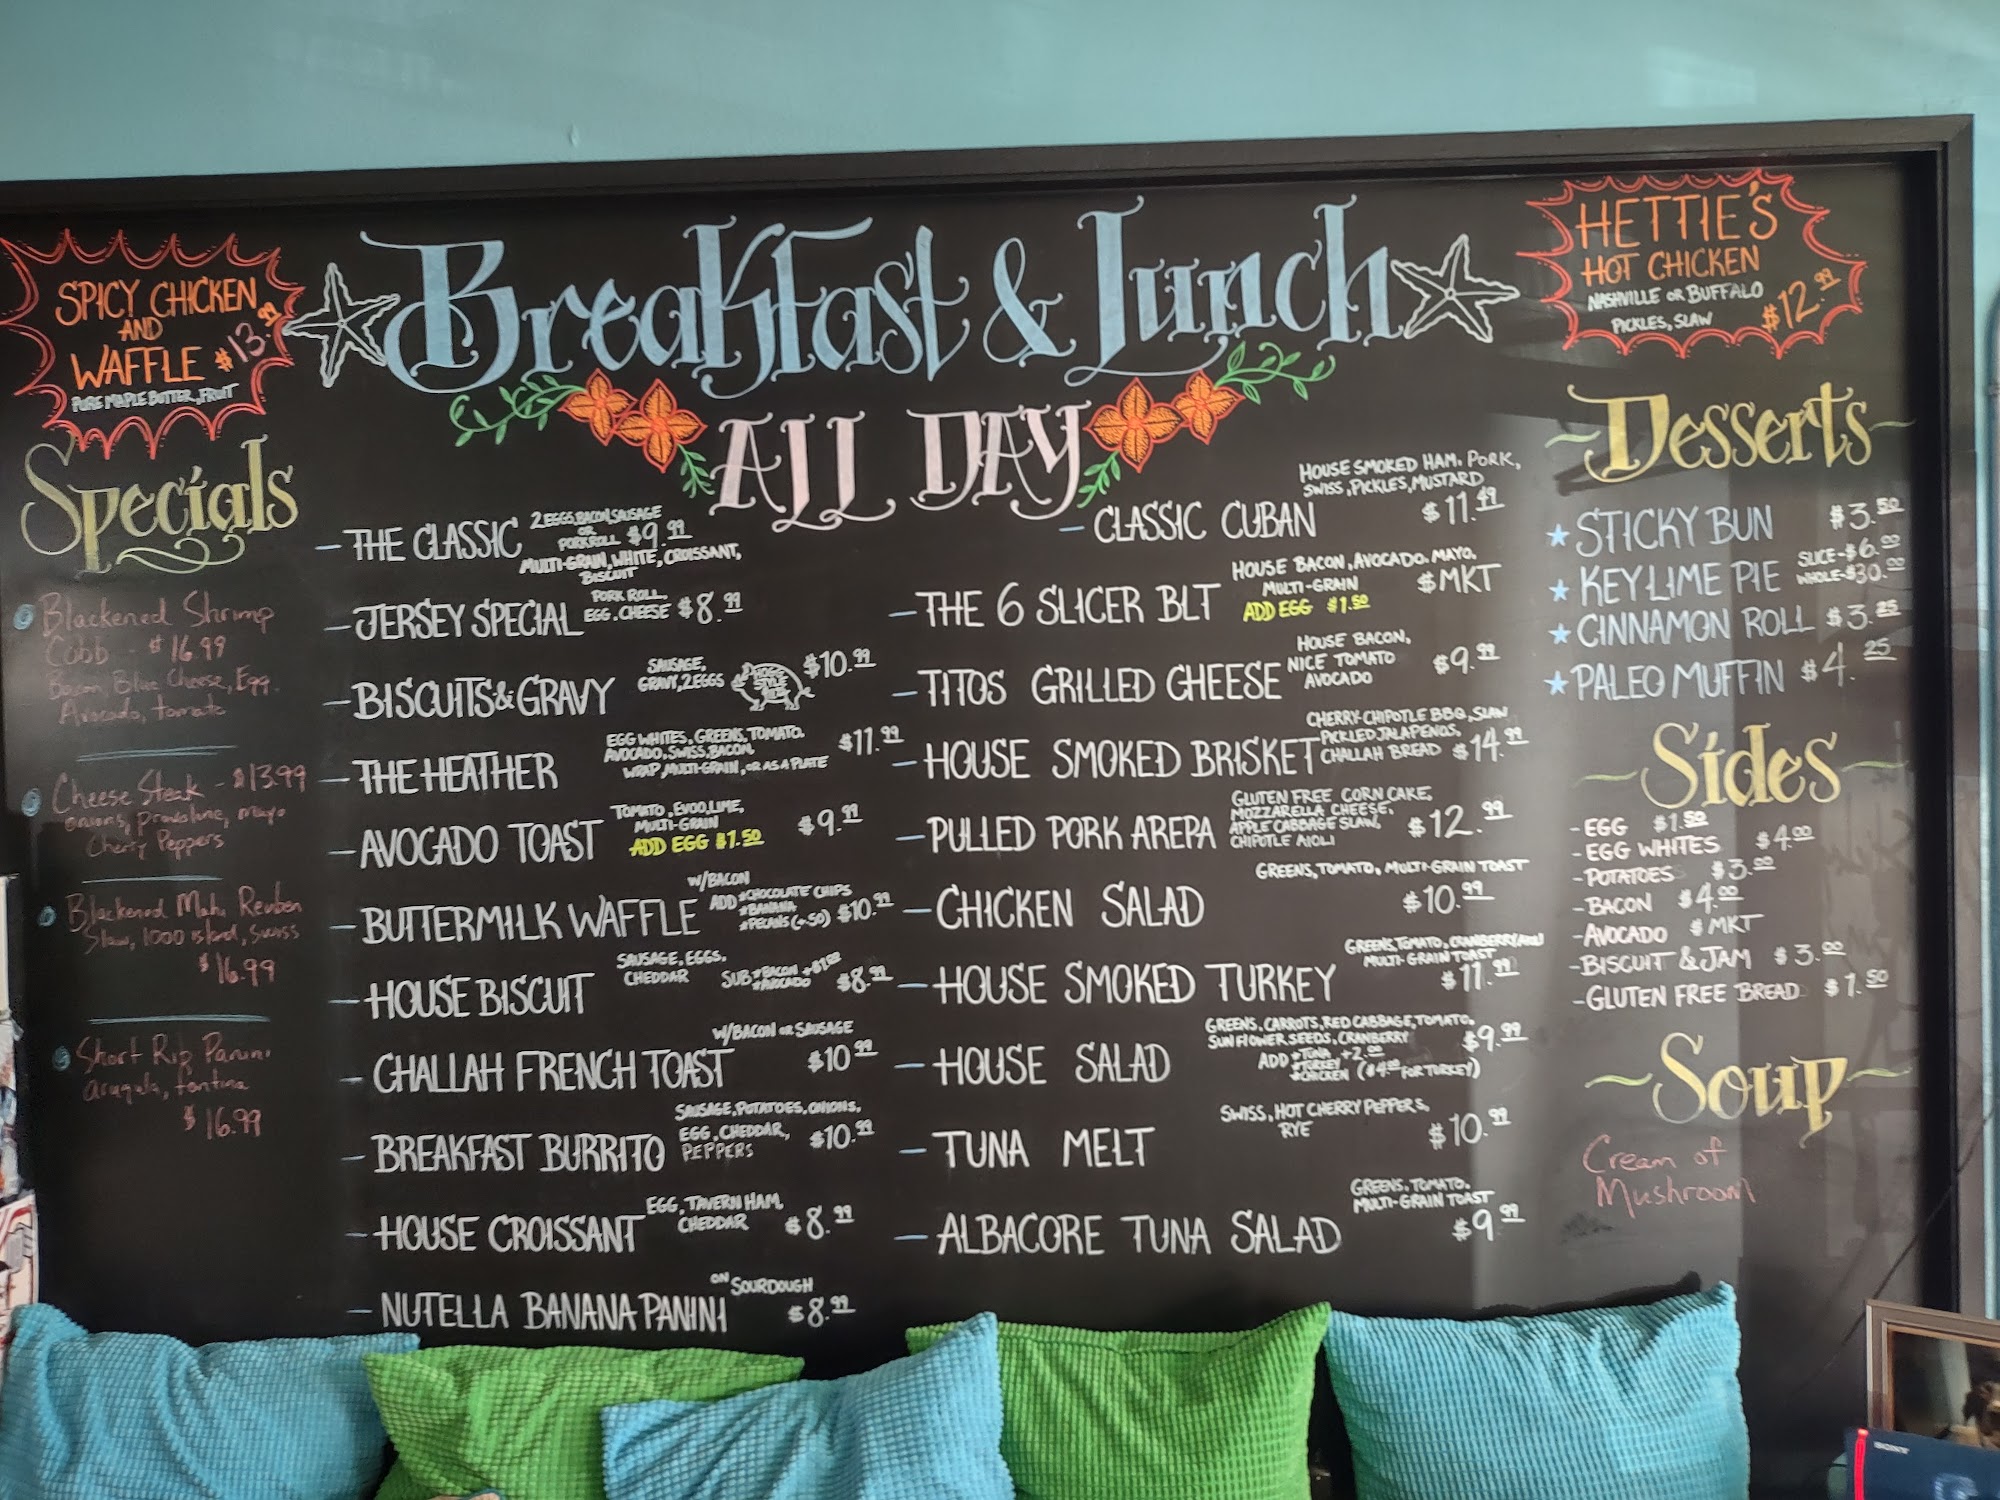 SPICY CHICKEN
AND
WAFFLE $13.99
PURE MAPLE BUTTER, FRUIT
Specials
Blackened Shrimp
Cobb - $16.99
Bacon, Blue Cheese, Egg.
Avocado, tomato
Cheese Steak - $13.99
onions, provolone, mayo
Cherry Peppers
Blackened Mahi Reuben
Slaw, 1000 island, swiss
$16.99
Short Rib Panini
arugula, fontina
$16.99
Breakfast & Lunch
ALL DAY
- THE CLASSIC 2 EGGS, BACON, SAUSAGE
OR
PORKROLL $9.99
MULTI-GRAIN, WHITE, CROISSANT,
BISCUIT
- JERSEY SPECIAL PORK ROLL,
EGG, CHEESE $8.99
- BISCUITS & GRAVY SAUSAGE,
GRAVY, 2 EGGS $10.99
- THE HEATHER EGG WHITES, GREENS, TOMATO,
AVOCADO, SWISS, BACON,
WRAP, MULTI-GRAIN, OR AS A PLATE $11.99
- AVOCADO TOAST TOMATO, EVOO, LIME,
MULTI-GRAIN $9.99
ADD EGG $1.50
- BUTTERMILK WAFFLE W/BACON
ADD *CHOCOLATE CHIPS
*BANANA
*PECANS (+.50) $10.99
- HOUSE BISCUIT SAUSAGE, EGGS,
CHEDDAR SUB *BACON +$1.00
*AVOCADO $8.99
- CHALLAH FRENCH TOAST W/BACON OR SAUSAGE
$10.99
- BREAKFAST BURRITO SAUSAGE, POTATOES, ONIONS,
EGG, CHEDDAR,
PEPPERS $10.99
- HOUSE CROISSANT EGG, TAVERN HAM,
CHEDDAR $8.99
- NUTELLA BANANA PANINI ON SOURDOUGH
$8.99
- CLASSIC CUBAN HOUSE SMOKED HAM, PORK,
SWISS, PICKLES, MUSTARD
$11.49
- THE 6 SLICER BLT HOUSE BACON, AVOCADO, MAYO,
MULTI-GRAIN $MKT
ADD EGG $1.50
- TITOS GRILLED CHEESE HOUSE BACON,
NICE TOMATO
AVOCADO $9.99
- HOUSE SMOKED BRISKET CHERRY-CHIPOTLE BBQ, SLAW
PICKLED JALAPENOS,
CHALLAH BREAD $14.99
- PULLED PORK AREPA GLUTEN FREE CORN CAKE,
MOZZARELLA CHEESE,
APPLE CABBAGE SLAW,
CHIPOTLE AIOLI $12.99
- CHICKEN SALAD GREENS, TOMATO, MULTI-GRAIN TOAST
$10.99
- HOUSE SMOKED TURKEY GREENS, TOMATO, CRANBERRY AIOLI
MULTI-GRAIN TOAST
$11.99
- HOUSE SALAD GREENS, CARROTS, RED CABBAGE, TOMATO,
SUNFLOWER SEEDS, CRANBERRY $9.99
ADD *TUNA +2.00
*TURKEY
*CHICKEN ($4.00 FOR TURKEY)
- TUNA MELT SWISS, HOT CHERRY PEPPERS,
RYE $10.99
- ALBACORE TUNA SALAD GREENS, TOMATO,
MULTI-GRAIN TOAST
$9.99
HETTIE'S
HOT CHICKEN
NASHVILLE OR BUFFALO
PICKLES, SLAW $12.99
Desserts
STICKY BUN $3.50
KEY LIME PIE SLICE-$6.00
WHOLE-$30.00
CINNAMON ROLL $3.25
PALEO MUFFIN $4.25
Sides
- EGG $1.50
- EGG WHITES $4.00
- POTATOES $3.00
- BACON $4.00
- AVOCADO $MKT
- BISCUIT & JAM $3.00
- GLUTEN FREE BREAD $1.50
Soup
Cream of
Mushroom
SONY